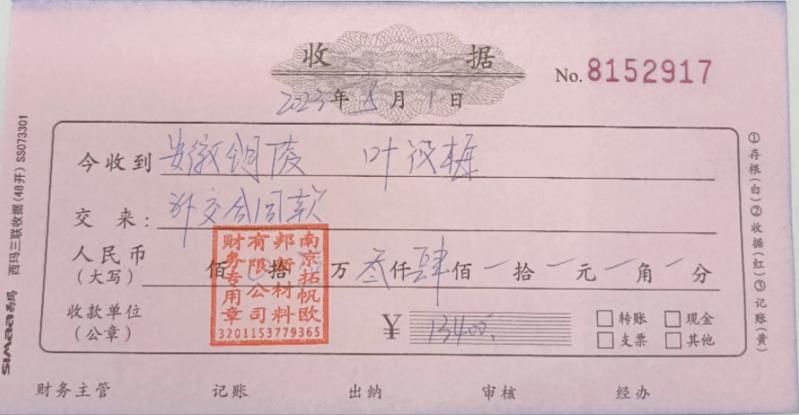 收 据
No. 8152917
2023年 5月 1日
今收到 安徽铜陵 叶设梅
交 来: 补交合同款
人民币
(大写) 佰 拾 万 叁仟肆佰 一 拾 一 元 一 角 一 分
收款单位
(公章)
¥ 13400.
转账 现金
支票 其他
财务主管 记账 出纳 审核 经办
南京拓帆欧
邦新材料
有限公司
财务专用章
3201153779365
①存根(白)②收据(红)③记账(黄)
西玛三联收据(48开) SS073301
Simaa西玛